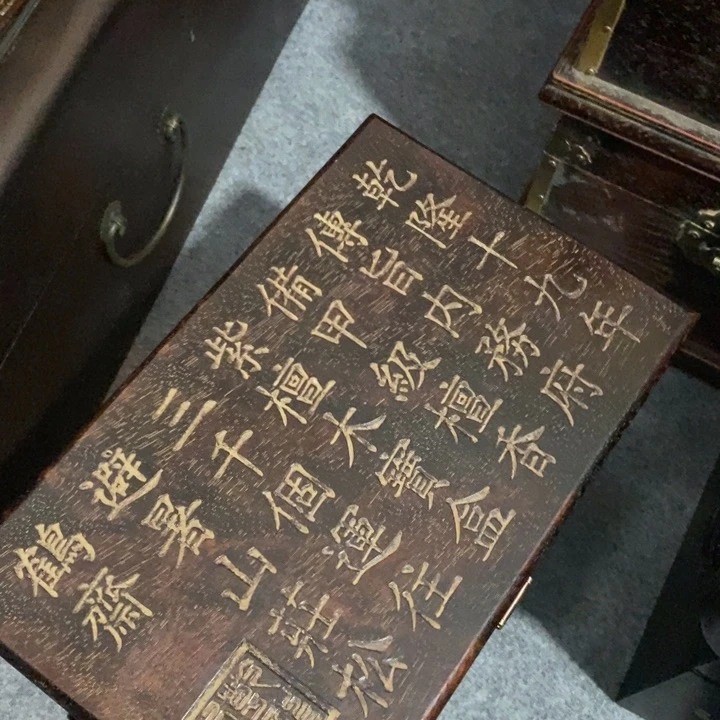 乾隆十九年
傳旨內務府
備甲級檀香
紫檀木寶盒
三千個運往
避暑山莊松
鶴齋